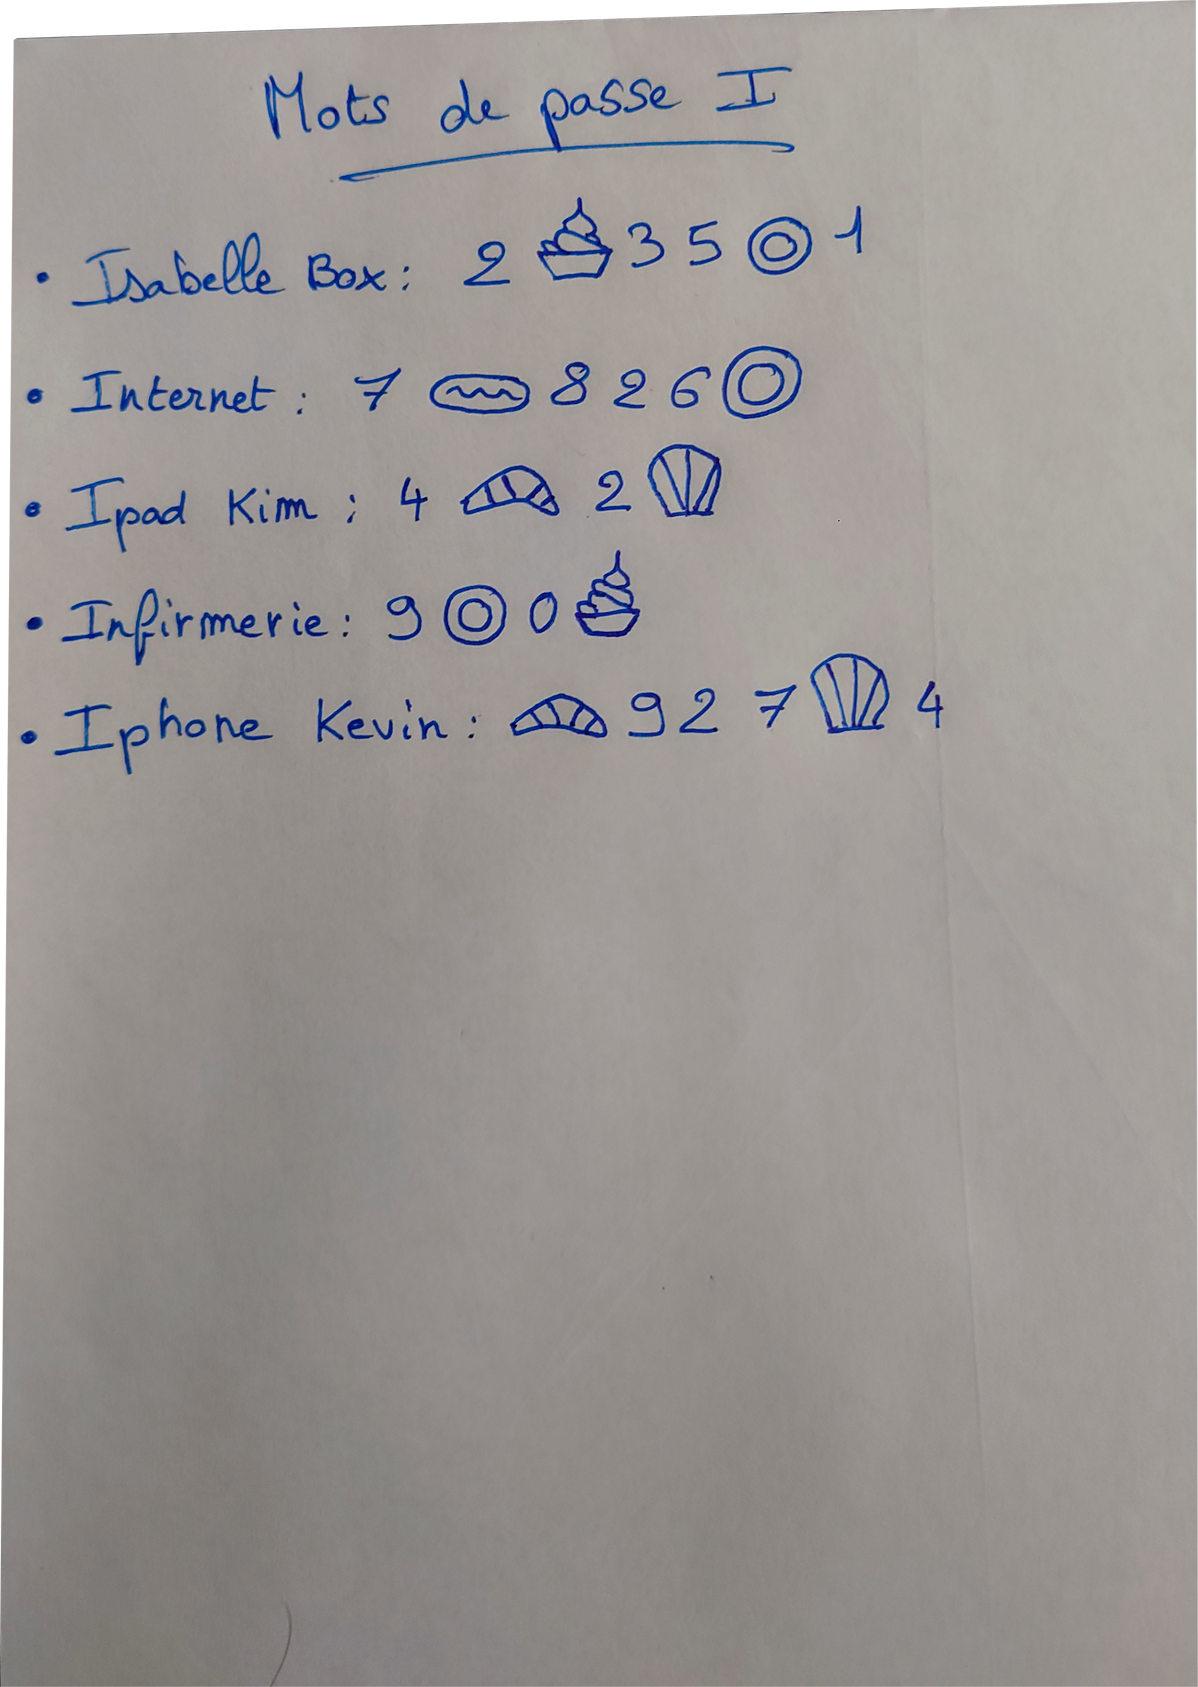 Mots de passe I
• Isabelle Box : 2 3 5 1
• Internet : 7 8 2 6
• Ipad Kim : 4 2
• Infirmerie : 9 0
• Iphone Kevin : 9 2 7 4